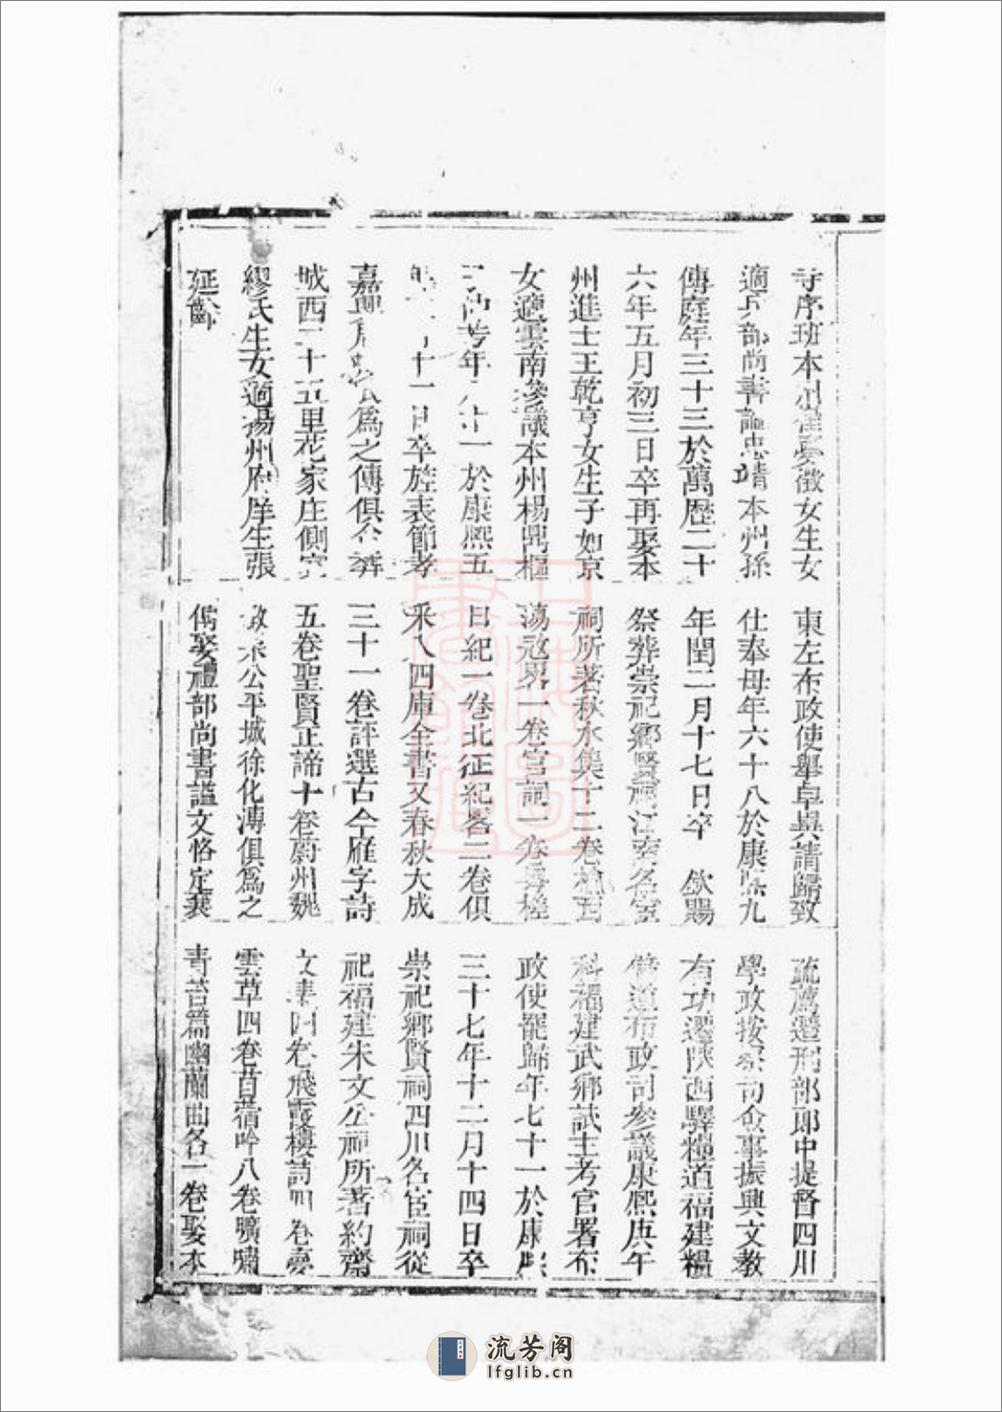 寺序班本州崔夢徵女生女
適兵部尚書謚忠靖本州孫
傳庭年三十三於萬歷二十
六年五月初三日卒再娶本
州進士王乾亨女生子如京
女適雲南參議本州楊鼎樞
年 一於康熙五
十一日卒旌表節孝
嘉 為之傳俱合葬
城西二十五里花家庄側室
繆氏生女適揚州府庠生張
延齡
東左布政使舉卓異請歸致
仕奉母年六十八於康熙九
年閏二月十七日卒 欽賜
祭葬崇祀鄉賢祠江南名宦
祠所著秋水集十二卷
蕩寇畧一卷宮詞一卷 槎
日紀一卷北征紀畧二卷俱
采入四庫全書又春秋大成
三十一卷評選古今雁字詩
五卷聖賢正諦十卷蔚州魏
公平城徐化溥俱為之
傳娶禮部尚書謚文恪定襄
疏薦遷刑部郎中提督四川
學政按察司僉事振興文教
有功遷陝西驛糧道福建糧
道布政司參議康熙庚午
科福建武鄉試主考官署布
政使罷歸年七十一於康熙
三十七年十二月十四日卒
崇祀鄉賢祠四川名宦祠從
祀福建朱文公祠所著約齋
文集四卷飛霞樓詩四卷夢
雲草四卷苜蓿吟八卷曠嘯
青苔篇幽蘭曲各一卷娶本
流芳阁
lfglib.cn